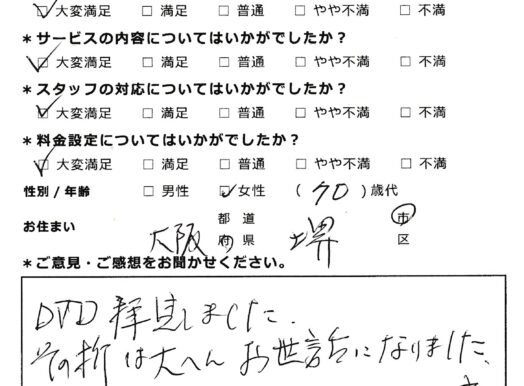 ☑ 大変満足 □ 満足 □ 普通 □ やや不満 □ 不満
*サービスの内容についてはいかがでしたか？
☑ 大変満足 □ 満足 □ 普通 □ やや不満 □ 不満
*スタッフの対応についてはいかがでしたか？
☑ 大変満足 □ 満足 □ 普通 □ やや不満 □ 不満
*料金設定についてはいかがでしたか？
☑ 大変満足 □ 満足 □ 普通 □ やや不満 □ 不満
性別/年齢 □ 男性 ☑ 女性 ( 70 )歳代
お住まい 大阪 都道府県 堺 市区
*ご意見・ご感想をお聞かせください。
DVD拝見しました。
その折は大へんお世話になりました、